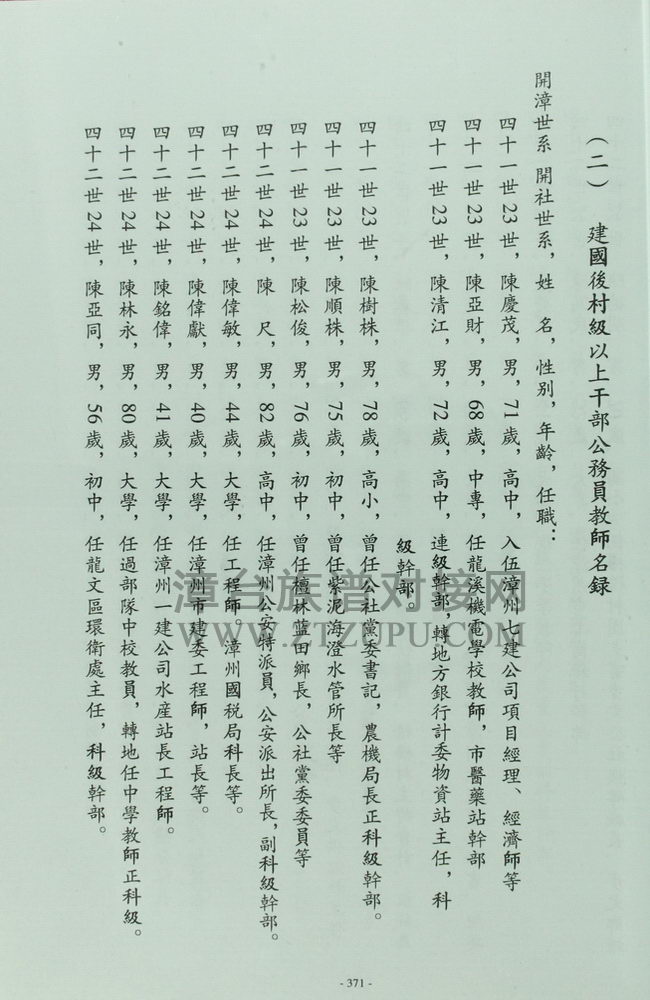 （二） 建國後村級以上干部公務員教師名録
開漳世系 開社世系，姓　名，性别，年齡，任職：
四十一世 23 世，陳慶茂，男，71 歲，高中，入伍漳州七建公司項目經理、經濟師等
四十一世 23 世，陳亞財，男，68 歲，中專，任龍溪機電學校教師，市醫藥站幹部
四十一世 23 世，陳清江，男，72 歲，高中，連級幹部，轉地方銀行計委物資站主任，科
級幹部。
四十一世 23 世，陳樹株，男，78 歲，高小，曾任公社黨委書記，農機局長正科級幹部。
四十一世 23 世，陳順株，男，75 歲，初中，曾任紫泥海澄水管所長等
四十一世 23 世，陳松俊，男，76 歲，初中，曾任檀林蓝田鄉長，公社黨委委員等
四十二世 24 世，陳　尺，男，82 歲，高中，任漳州公安特派員，公安派出所長，副科級幹部。
四十二世 24 世，陳偉敏，男，44 歲，大學，任工程師。漳州國税局科長等。
四十二世 24 世，陳偉獻，男，40 歲，大學，任漳州市建委工程師，站長等。
四十二世 24 世，陳銘偉，男，41 歲，大學，任漳州一建公司水産站長工程師。
四十二世 24 世，陳林永，男，80 歲，大學，任過部隊中校教員，轉地任中學教師正科級。
四十二世 24 世，陳亞同，男，56 歲，初中，任龍文區環衛處主任，科級幹部。
漳台族谱对接网
WWW.ZTZUPU.COM
- 371 -